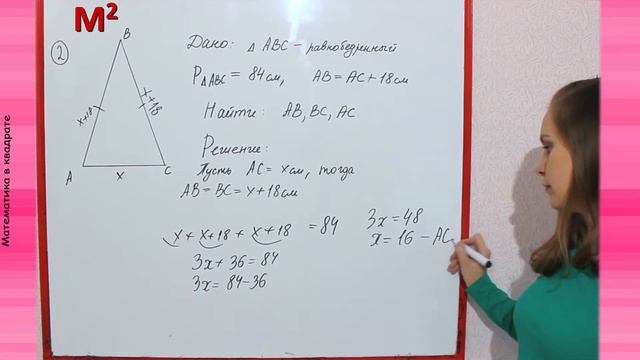 M²
Математика в квадрате
2
B
x+18
x+18
A
x
C
Дано: △ ABC – равнобедренный
P△ABC = 84 см, AB = AC + 18 см
Найти: AB, BC, AC
Решение:
Пусть AC = x см, тогда
AB = BC = x + 18 см
x + x+18 + x+18 = 84
3x + 36 = 84
3x = 84-36
3x = 48
x = 16 – AC